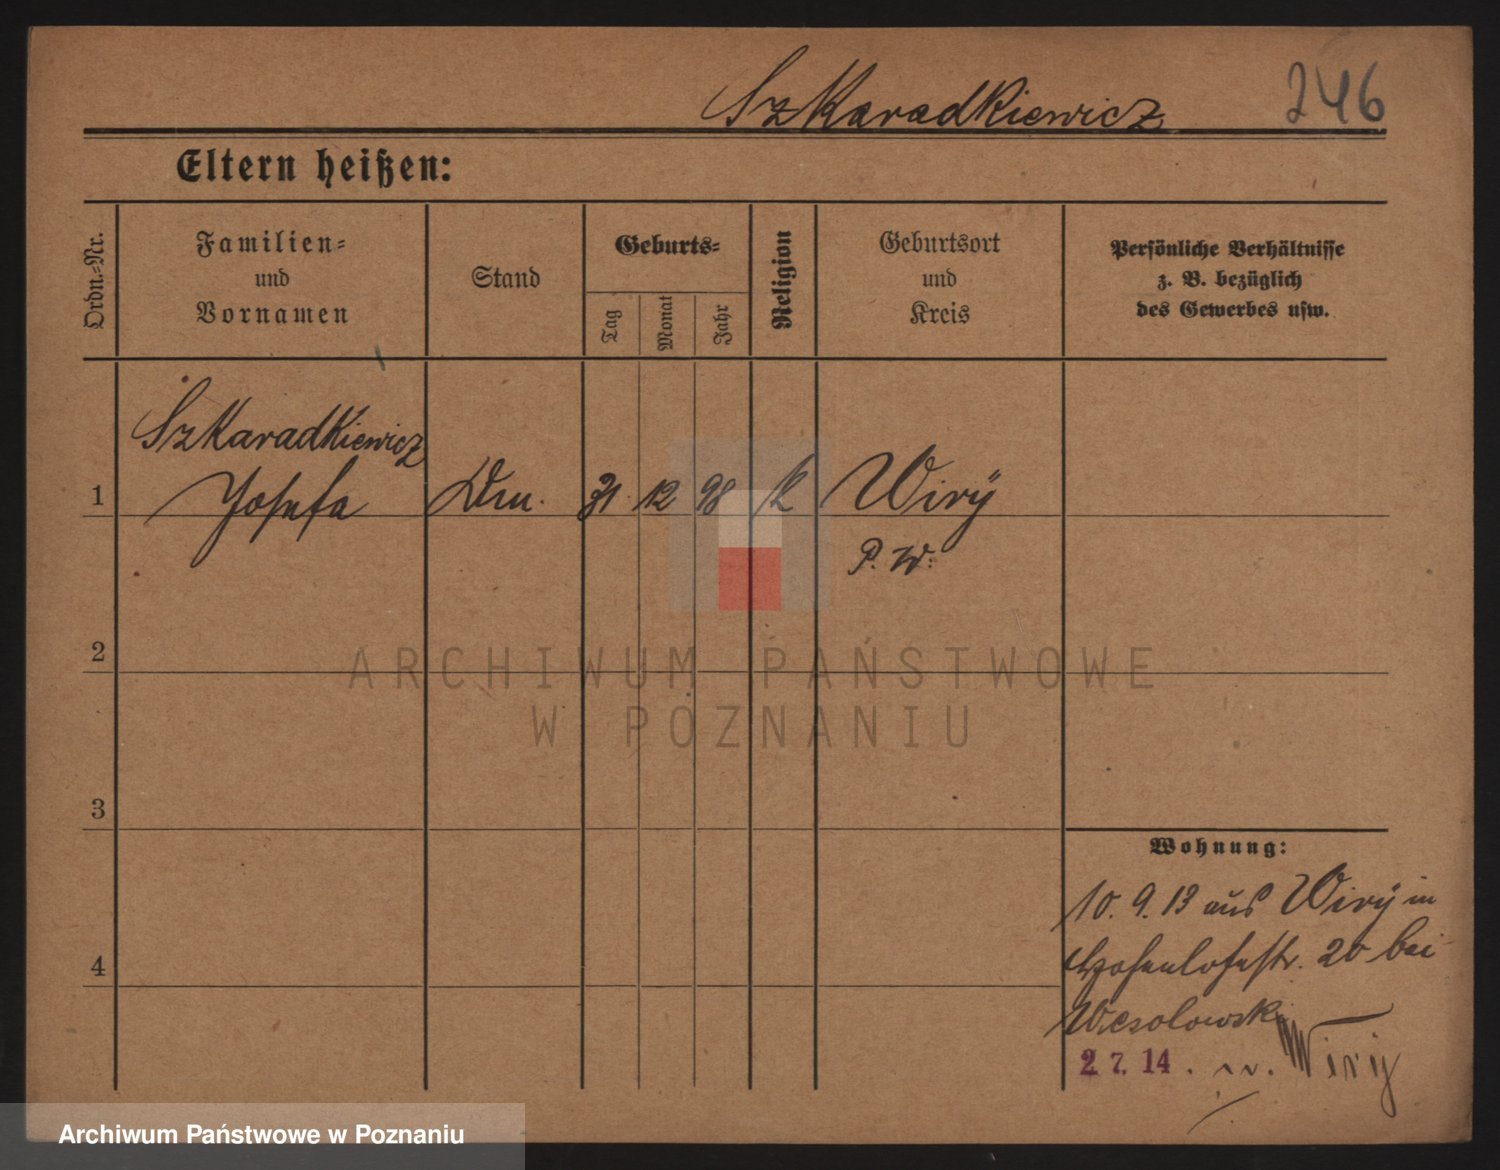 Szkaradkiewicz 246
Eltern heißen:
Ordn.-Nr.
Familien-
und
Vornamen
Stand
Geburts-
Tag
Monat
Jahr
Religion
Geburtsort
und
Kreis
Persönliche Verhältnisse
z. B. bezüglich
des Gewerbes usw.
Szkaradkiewicz
1 Josefa Dm. 31 12 98 k Wiry
P. W.
2
3
4
Wohnung:
10. 9. 13 aus Wiry in
Hohenlohestr. 20 bei
Wesolowski
2 7. 14. n. Wiry
ARCHIWUM PAŃSTWOWE
W POZNANIU
Archiwum Państwowe w Poznaniu